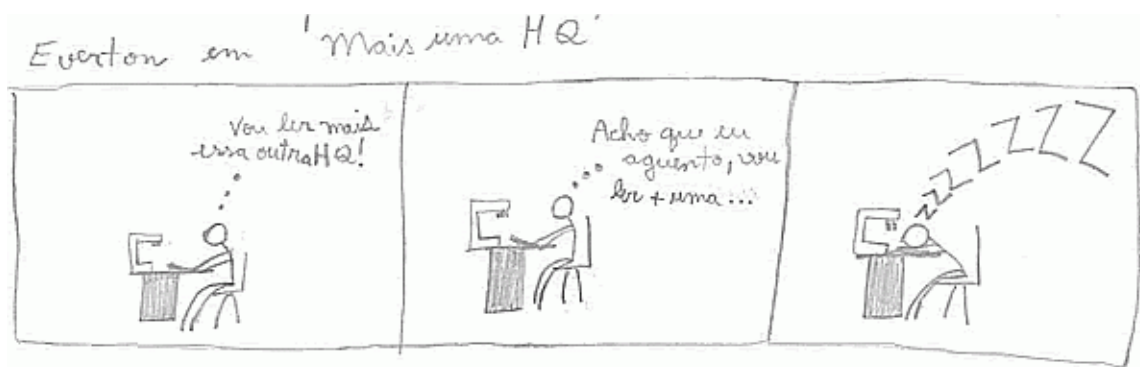 Everton em 'Mais uma HQ'
Vou ler mais
essa outra HQ!
Acho que eu
aguento, vou
ler + uma...
zzzzZZZZ